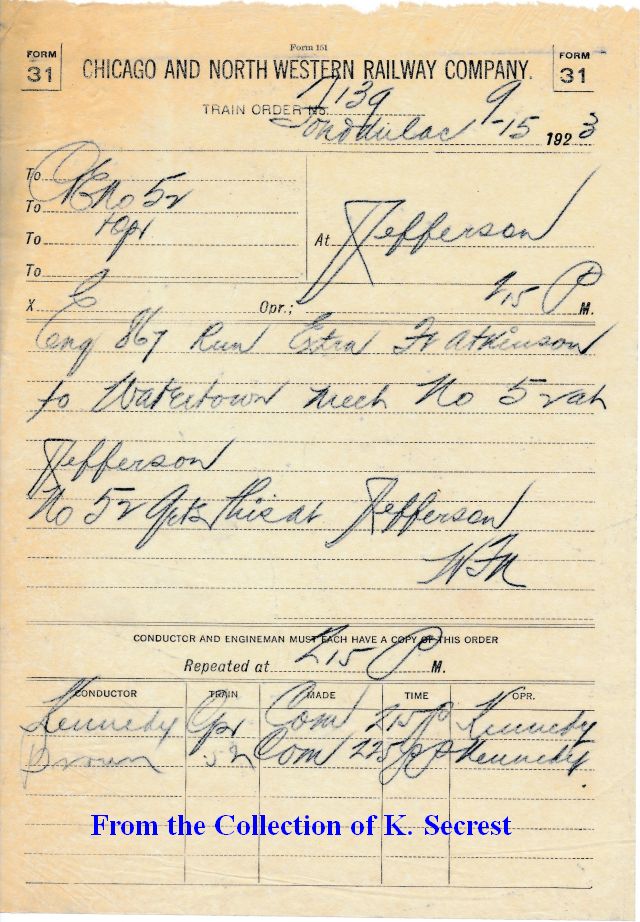 Form 151
FORM 31
CHICAGO AND NORTH WESTERN RAILWAY COMPANY.
FORM 31
TRAIN ORDER No. 139
Fonddulac 9-15 1923
To C&E No 52
To Opr
To
To
At Jefferson
X Opr.; 215 P M.
Eng 867 Run Extra Ft Atkinson
to Watertown meet No 52 at
Jefferson
No 52 gets this at Jefferson
CONDUCTOR AND ENGINEMAN MUST EACH HAVE A COPY OF THIS ORDER
Repeated at 215 P M.
CONDUCTOR TRAIN MADE TIME OPR.
Kennedy Opr Com 215 P Kennedy
Brown 52 Com 225 P Kennedy
From the Collection of K. Secrest